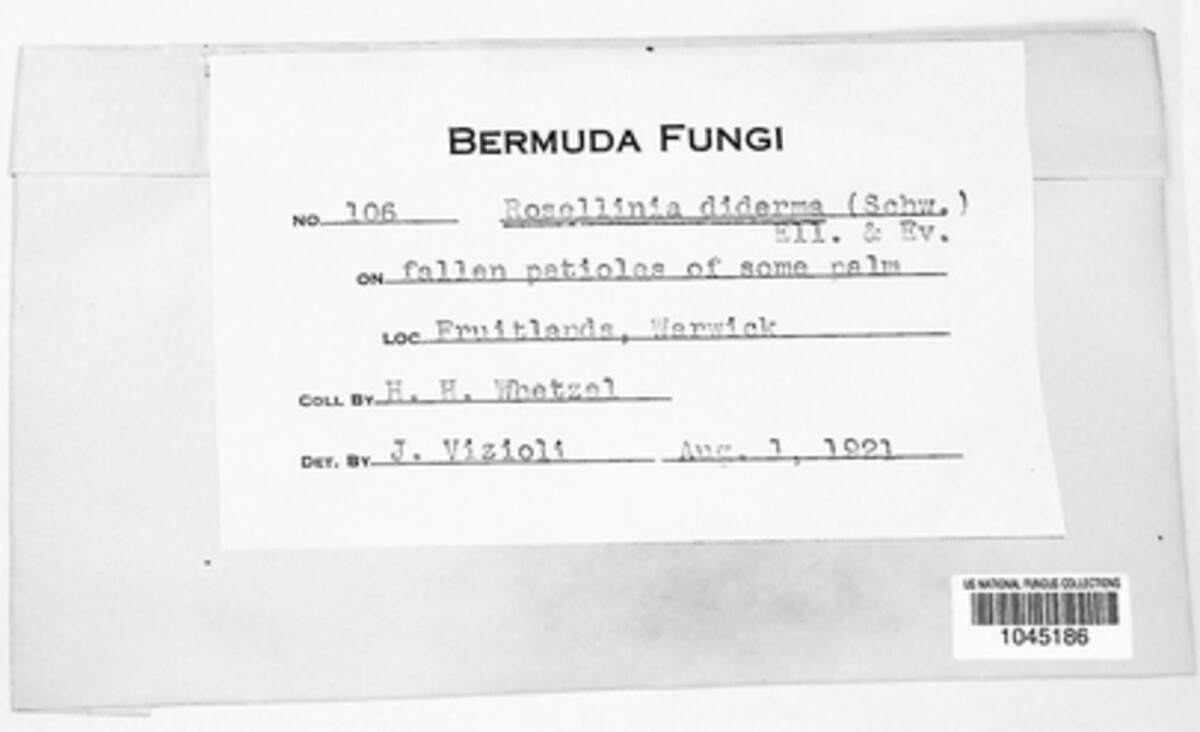 BERMUDA FUNGI
NO. 106 Rosellinia diderma (Schw.)
Ell. & Ev.
ON fallen petioles of some palm
LOC Fruitlands, Warwick
COLL. BY H. H. Whetzel
DET. BY J. Vizioli Aug. 1, 1921
US NATIONAL FUNGUS COLLECTIONS
1045186